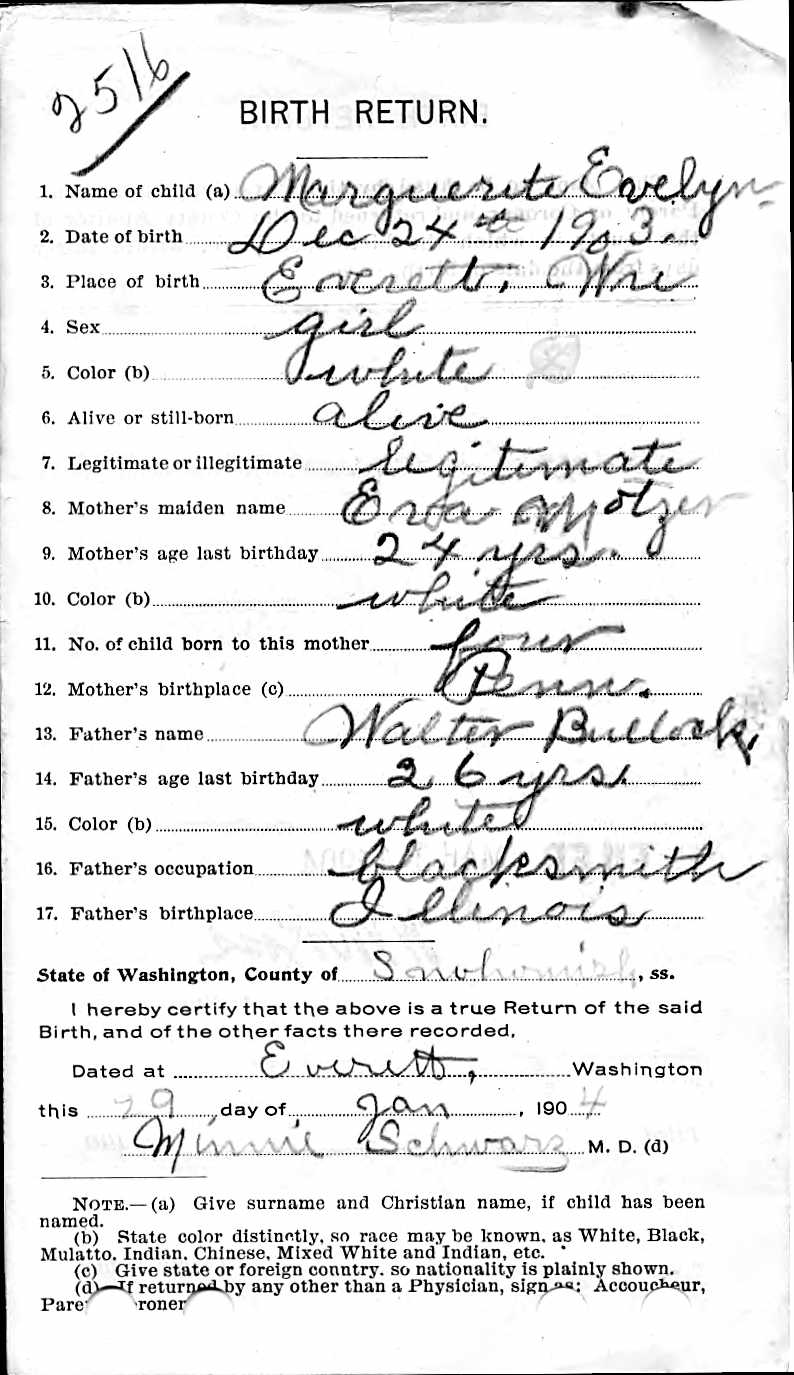 2516
BIRTH RETURN.
1. Name of child (a) Marguerite Evelyn
2. Date of birth Dec 24th 1903.
3. Place of birth Everett, Wn
4. Sex girl
5. Color (b) white
6. Alive or still-born alive
7. Legitimate or illegitimate legitimate
8. Mother's maiden name Eva Motzer
9. Mother's age last birthday 24 yrs.
10. Color (b) white
11. No. of child born to this mother four
12. Mother's birthplace (c) Penn.
13. Father's name Walter Bullock,
14. Father's age last birthday 26 yrs.
15. Color (b) white
16. Father's occupation blacksmith
17. Father's birthplace Illinois
State of Washington, County of Snohomish, ss.
I hereby certify that the above is a true Return of the said
Birth, and of the other facts there recorded,
Dated at Everett, Washington
this 29 day of Jan, 1904
Minnie Schwarz M. D. (d)
NOTE.—(a) Give surname and Christian name, if child has been
named.
(b) State color distinctly, so race may be known, as White, Black,
Mulatto. Indian, Chinese, Mixed White and Indian, etc.
(c) Give state or foreign country. so nationality is plainly shown.
(d) If returned by any other than a Physician, sign as: Accoucheur,
Pare roner